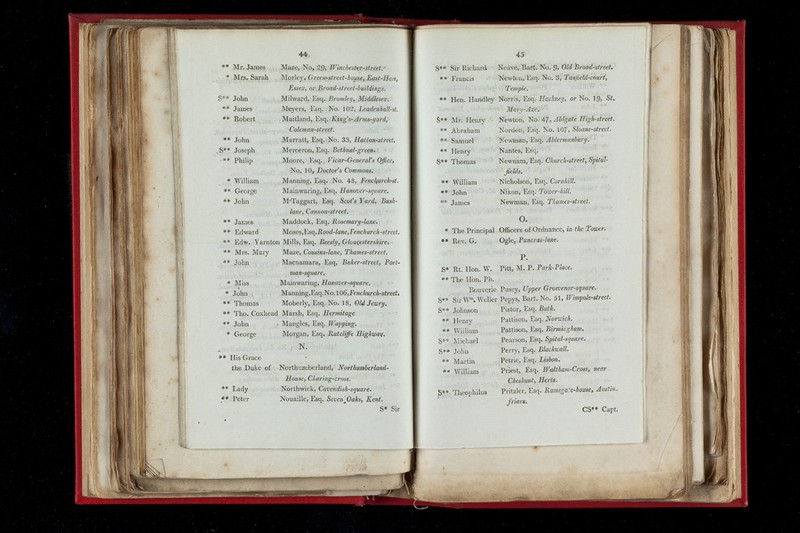 44
** Mr. James Maze, No. 29, Winchester-street.
* Mrs. Sarah Morley, Green-street-house, East-Ham,
Essex, or Broad-street-buildings.
S** John Milward, Esq. Bromley, Middlesex.
** James Meyers, Esq. No. 102, Leadenhall-st.
** Robert Maitland, Esq. King's-Arms-yard,
Coleman-street.
** John Marratt, Esq. No. 33, Hatton-street.
S** Joseph Merceron, Esq. Bethnal-green.
** Philip Moore, Esq. Vicar-General's Office,
No. 10, Doctor's Commons.
* William Manning, Esq. No. 48, Fenchurch-st.
** George Mainwaring, Esq. Hanover-square.
** John M'Taggart, Esq. Scot's Yard, Bush-
lane, Cannon-street.
** James Maddock, Esq. Rosemary-lane.
** Edward Moses, Esq. Rood-lane, Fenchurch-street.
** Edw. Yarnton Mills, Esq. Beesly, Gloucestershire.
** Mrs. Mary Maze, Cousins-lane, Thames-street.
** John Macnamara, Esq. Baker-street, Port-
man-square.
* Miss Mainwaring, Hanover-square.
* John Manning, Esq. No. 106, Fenchurch-street.
** Thomas Moberly, Esq. No. 18, Old Jewry.
** Tho. Coxhead Marsh, Esq. Hermitage
** John Mangles, Esq. Wapping.
* George Morgan, Esq. Ratcliffe Highway.
N.
** His Grace
the Duke of Northumberland, Northumberland-
House, Charing-cross.
** Lady Northwick, Cavendish-square.
** Peter Nouaille, Esq. Seven Oaks, Kent.
S* Sir
45
S** Sir Richard Neave, Bart. No. 9, Old Broad-street.
** Francis Newton, Esq. No. 3, Tanfield-court,
Temple.
** Hen. Handley Norris, Esq. Hackney, or No. 19, St.
Mary-Axe.
S** Mr. Henry Newton, No. 47, Aldgate High-street.
** Abraham Norden, Esq. No. 107, Sloane-street.
** Samuel Newman, Esq. Aldermanbury.
** Henry Nantes, Esq.
S** Thomas Newnam, Esq. Church-street, Spital-
fields.
** William Nicholson, Esq. Cornhill.
** John Nixon, Esq. Tower-hill.
** James Newman, Esq. Thames-street.
O.
* The Principal Officers of Ordnance, in the Tower.
** Rev. G. Ogle, Pancras-lane.
P.
S* Rt. Hon. W. Pitt, M. P. Park-Place.
** The Hon. Ph.
Bouverie Pusey, Upper Grosvenor-square.
S** Sir Wm. Weller Pepys, Bart. No. 51, Wimpole-street.
S** Johnson Pistor, Esq. Bath.
** Henry Pattison, Esq. Norwich.
** William Pattison, Esq. Birmingham.
S** Michael Pearson, Esq. Spital-square.
S** John Perry, Esq. Blackwall.
** Martin Petrie, Esq. Lisbon.
** William Priest, Esq. Waltham-Cross, near
Cheshunt, Herts.
S** Theophilus Pritzler, Esq. Ramsgate-house, Austin-
friars.
CS** Capt.